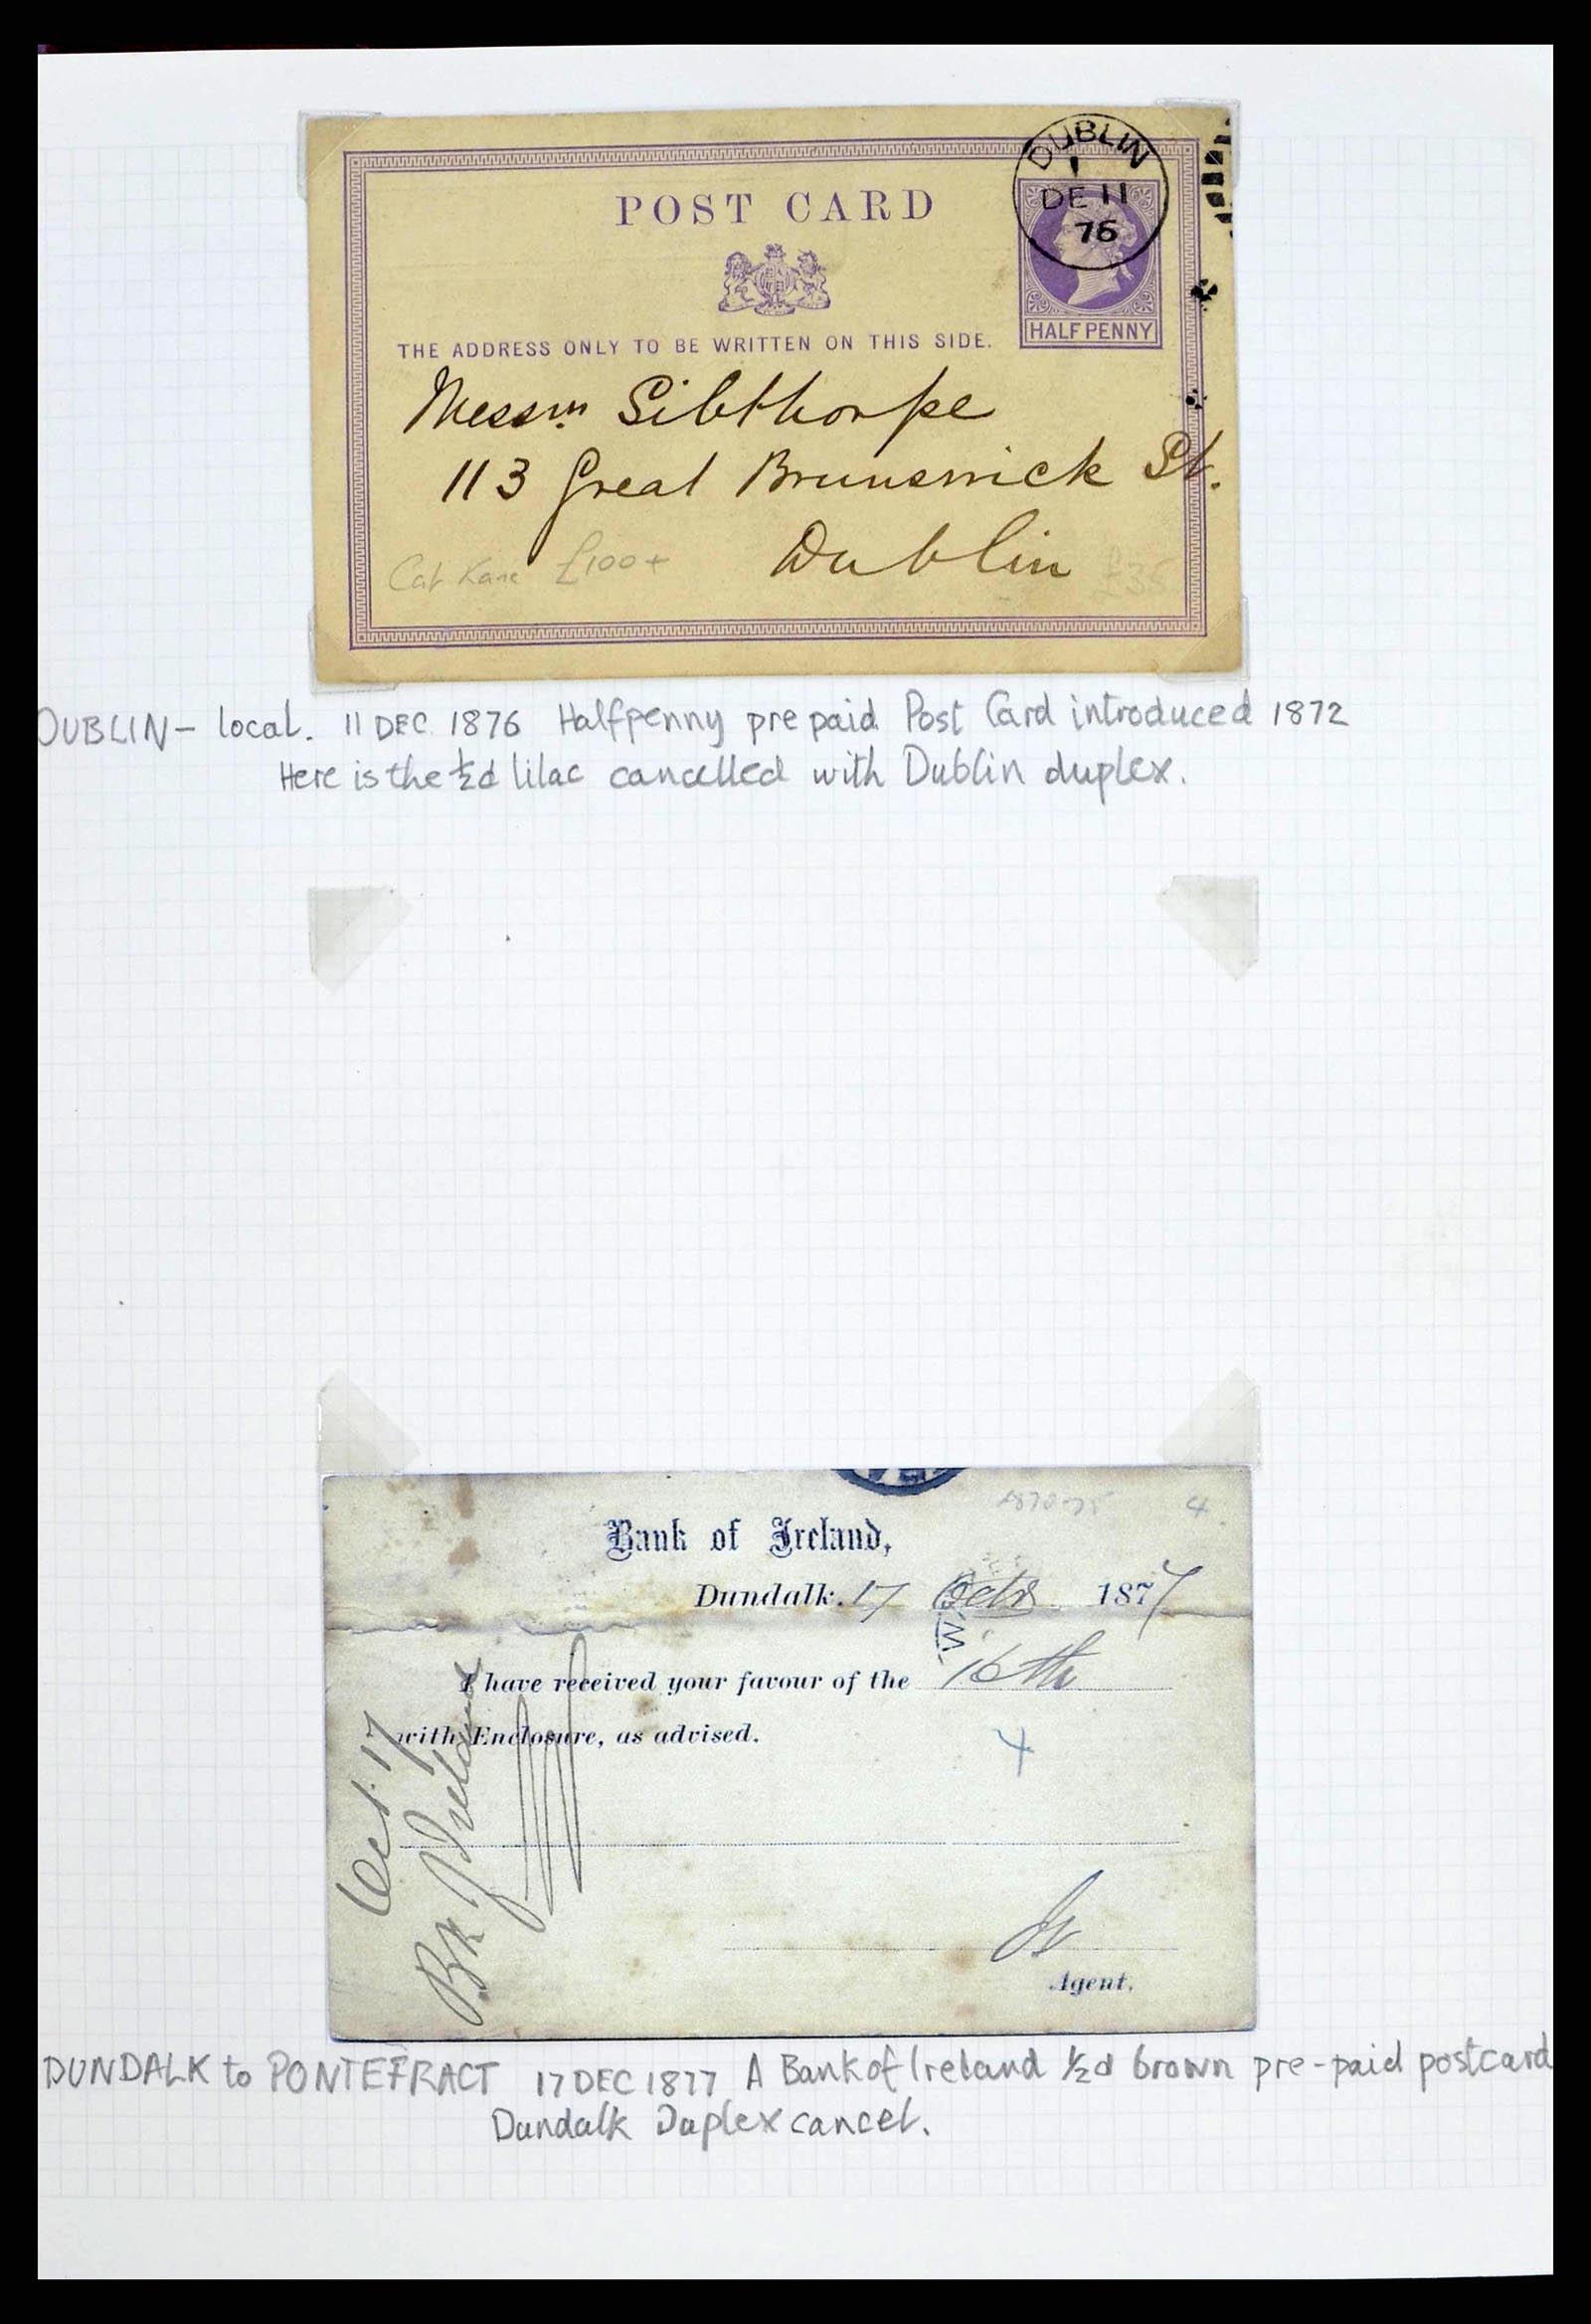 DUBLIN
1
DE 11
76
POST CARD
HALFPENNY
THE ADDRESS ONLY TO BE WRITTEN ON THIS SIDE.
Messrs. Sibthorpe
113 Great Brunswick St.
Dublin
Cat Kane £100+
£35
DUBLIN - local. 11 DEC. 1876 Halfpenny pre paid Post Card introduced 1872
Here is the ½d lilac cancelled with Dublin duplex.
1870-75 4
Bank of Ireland,
Dundalk. 17 Octr 1877
I have received your favour of the 16th
with Enclosure, as advised.
4
Oct. 17
Bk Ireland
Agent.
DUNDALK to PONTEFRACT 17 DEC 1877 A Bank of Ireland ½d brown pre-paid postcard
Dundalk Duplex cancel.